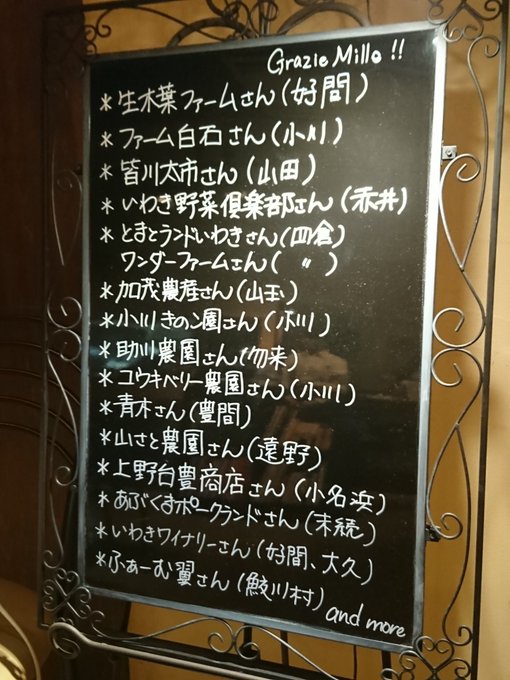 Grazie Mille !!
* 生木葉ファームさん(好間)
* ファーム白石さん(小川)
* 皆川太市さん(山田)
* いわき野菜倶楽部さん(赤井)
* とまとランドいわきさん(四倉)
ワンダーファームさん( 〃 )
* 加茂農産さん(山玉)
* 小川きのこ園さん(小川)
* 助川農園さん(勿来)
* ユウキベリー農園さん(小川)
* 青木さん(豊間)
* 山さと農園さん(遠野)
* 上野台豊商店さん(小名浜)
* あぶくまポークランドさん(末続)
* いわきワイナリーさん(好間、大久)
* ふぁーむ翼さん(鮫川村)
and more